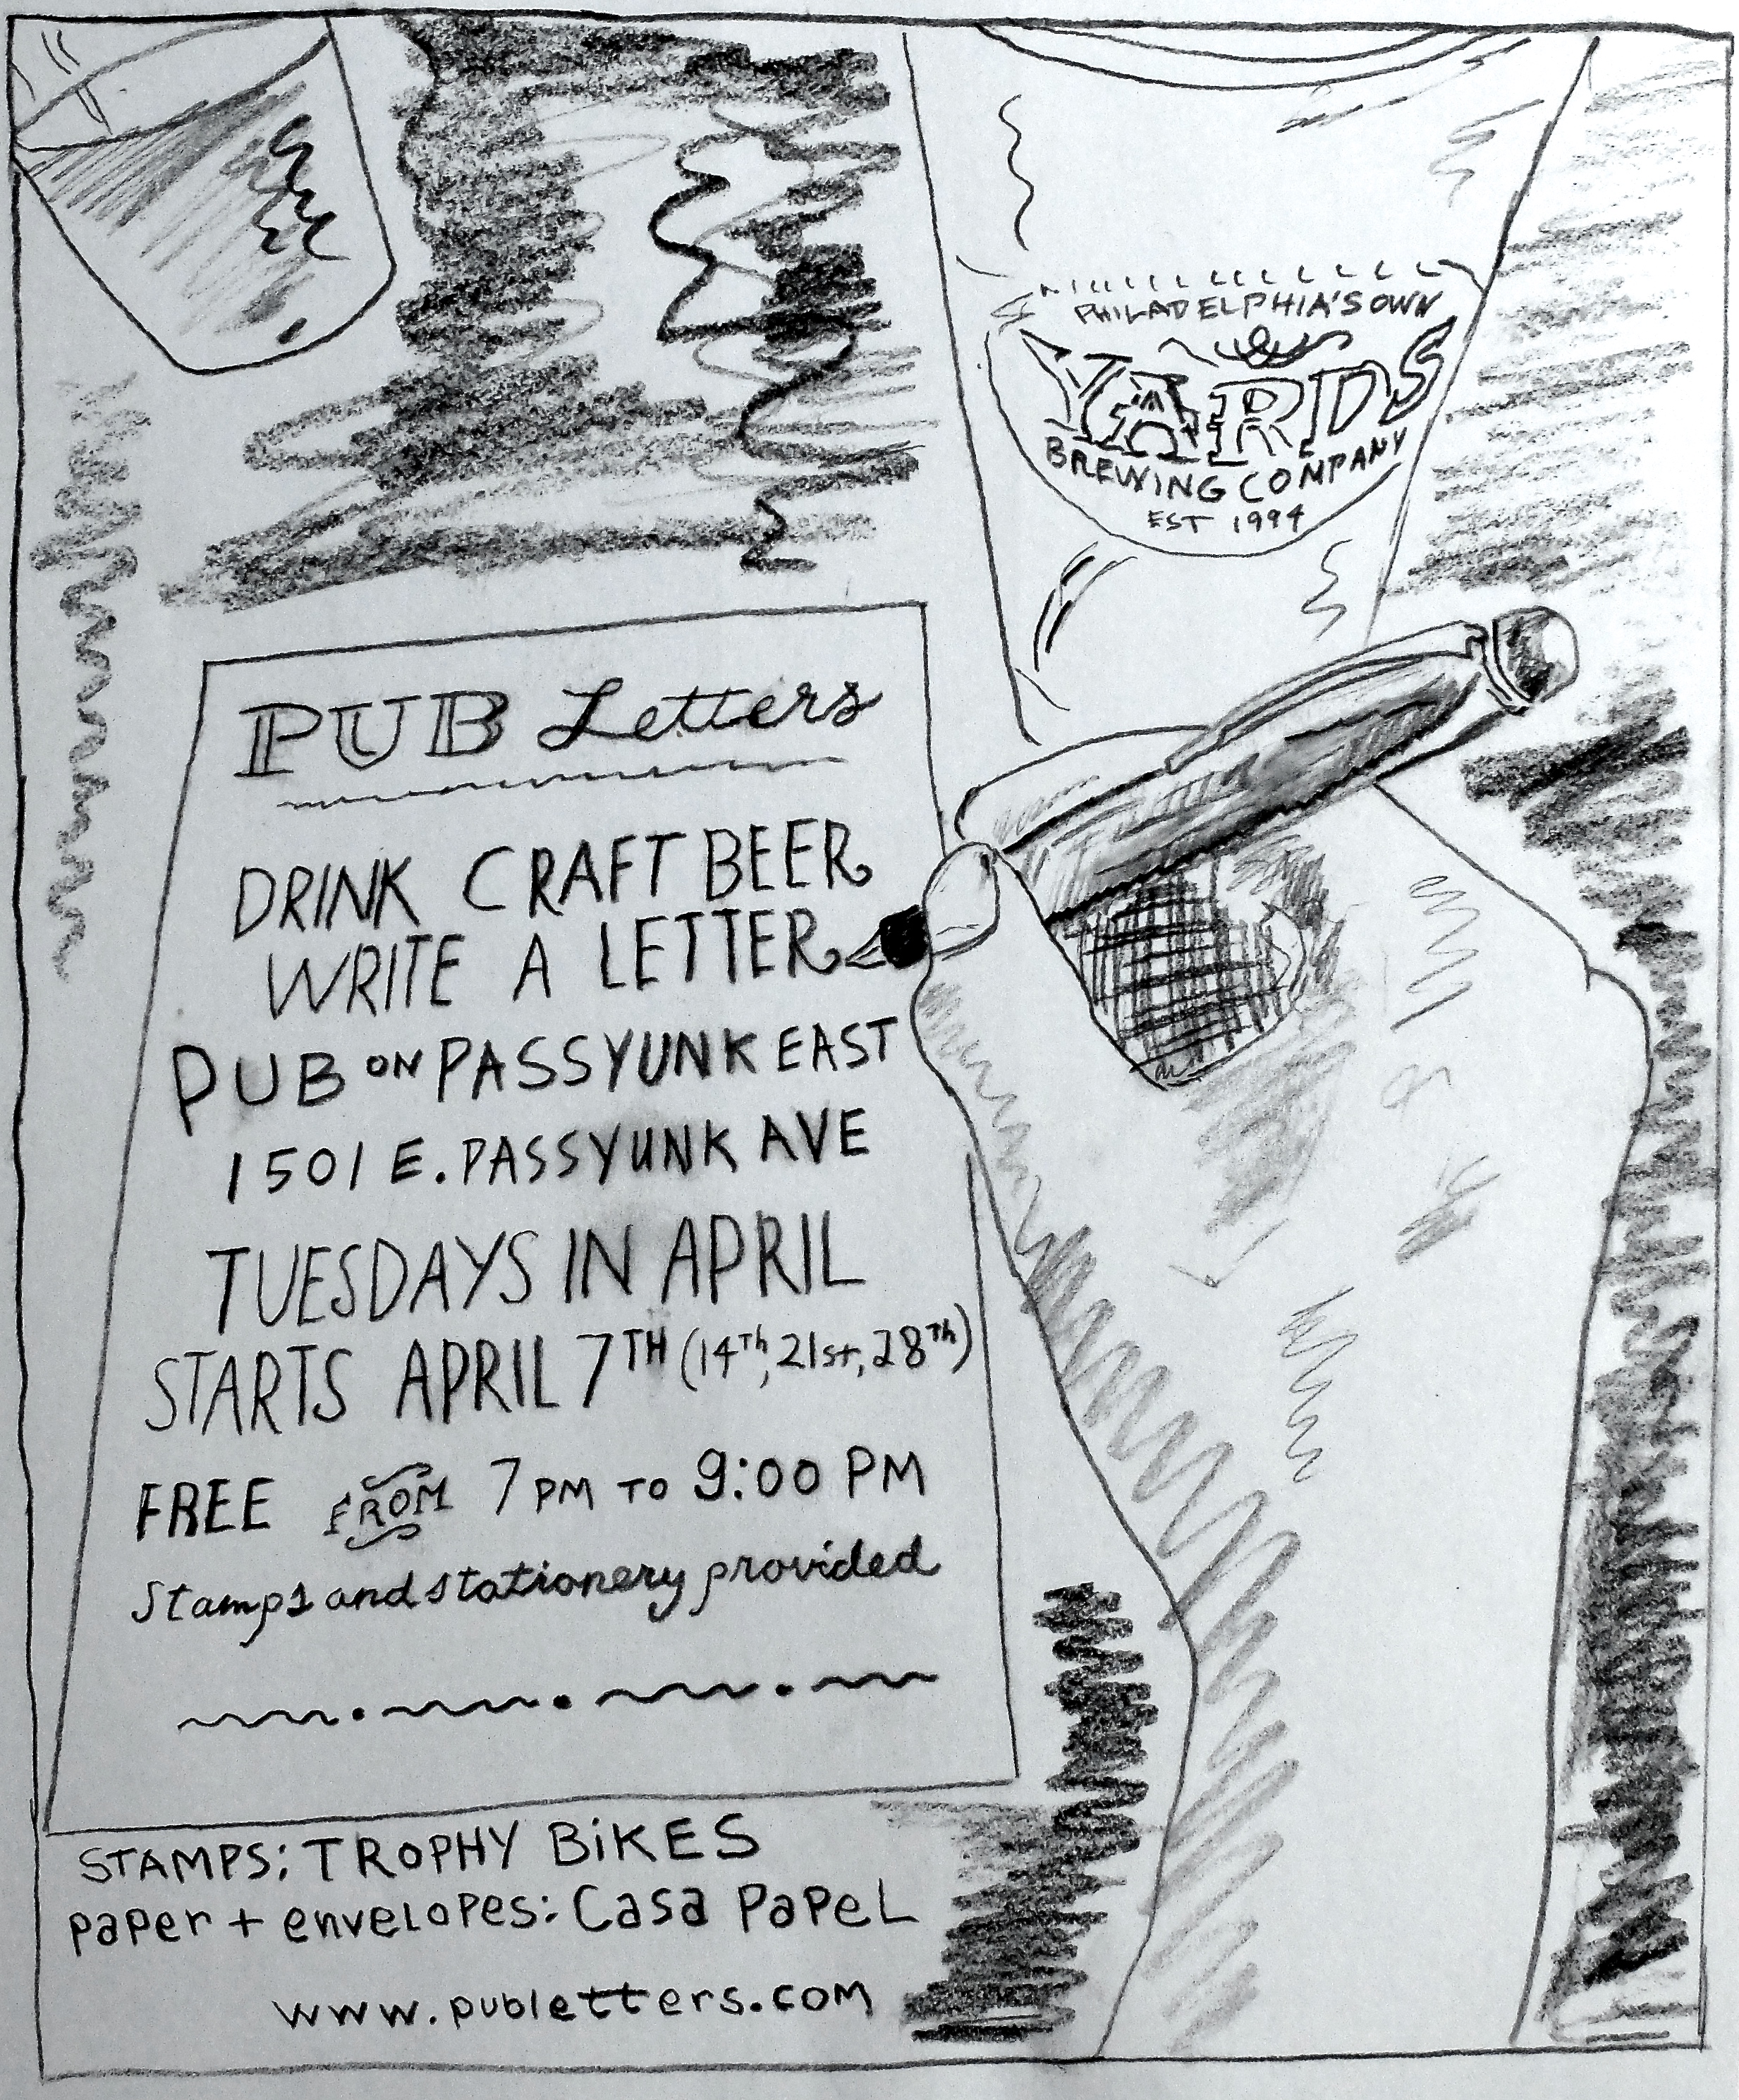 PHILADELPHIA'S OWN
YARDS
BREWING COMPANY
EST 1994
PUB Letters
DRINK CRAFT BEER
WRITE A LETTER
PUB ON PASSYUNK EAST
1501 E. PASSYUNK AVE
TUESDAYS IN APRIL
STARTS APRIL 7TH (14Th, 21st, 28Th)
FREE FROM 7 PM TO 9:00 PM
Stamps and stationery provided
STAMPS: TROPHY BiKES
PaPer + enveLoPes: Casa PaPeL
www.publetters.com